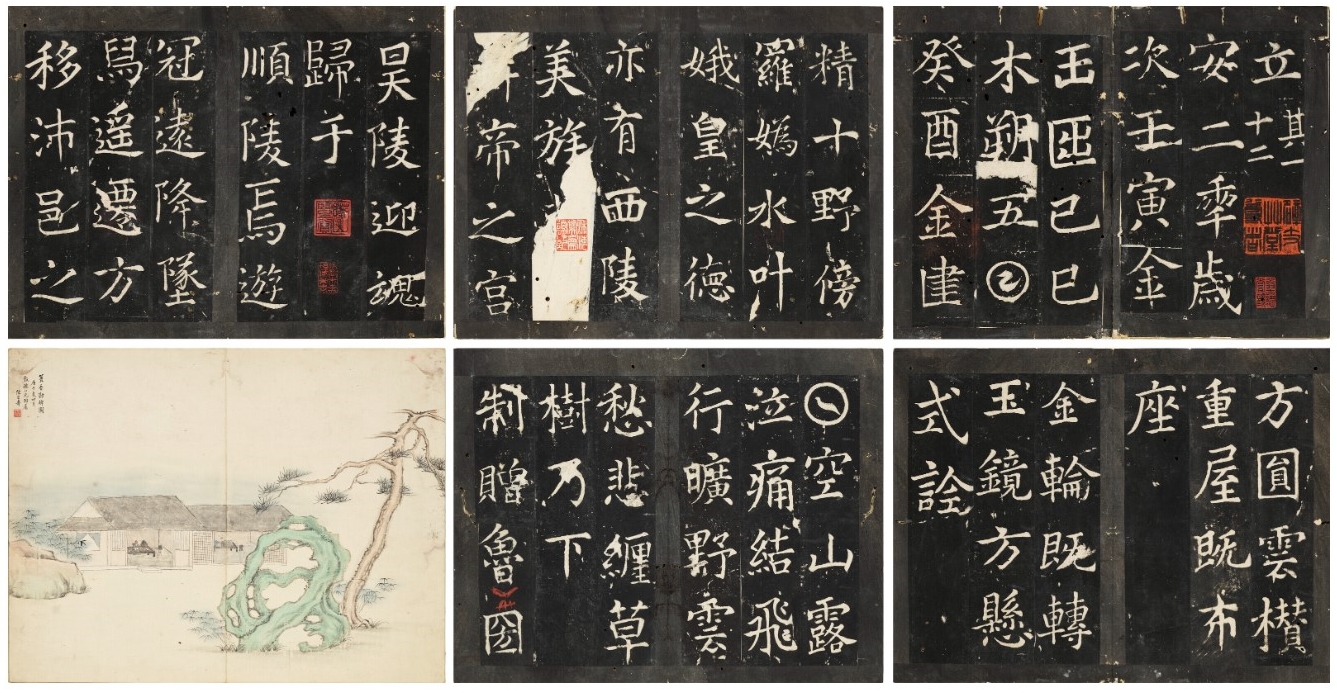 立 其一
十二
安二𠡦歲
次壬寅金
𠙺𠥱己巳
木朔五𡆠
癸酉金建
精十野傍
羅嬀水叶
娥皇之德
亦有西陵
美族
帝之宫
昊陵迎魂
歸于
順陵焉遊
冠遠降墜
舄遥遷方
移沛邑之
方圓雲櫕
重屋既布
座
金輪既轉
玉鏡方懸
式詮
𡆠空山露
泣痛結飛
行曠野雲
愁悲纏草
樹乃下
制贈魯圀